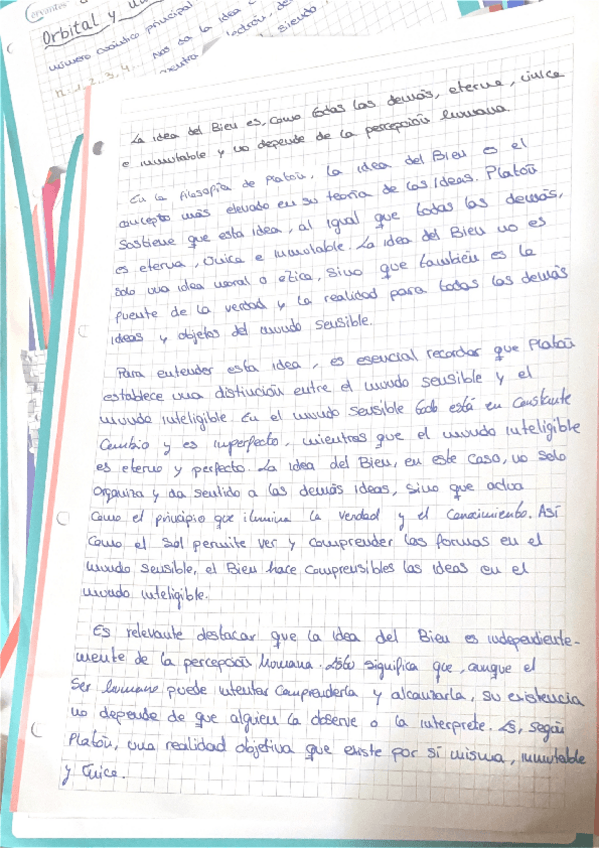 Cervantes
Orbital y
número cuántico principal
n: 1, 2, 3, 4.. Nos da la idea
siendo
La idea del Bien es, como todas las demás, eterna, única
e inmutable y no depende de la percepción humana.
En la filosofía de Platón, la idea del Bien es el
concepto más elevado en su teoría de las Ideas. Platón
sostiene que esta idea, al igual que todas las demás,
es eterna, única e inmutable. La idea del Bien no es
solo una idea moral o ética, sino que también es la
fuente de la verdad y la realidad para todas las demás
ideas y objetos del mundo sensible.
Para entender esta idea, es esencial recordar que Platón
establece una distinción entre el mundo sensible y el
mundo inteligible. En el mundo sensible todo está en constante
cambio y es imperfecto, mientras que el mundo inteligible
es eterno y perfecto. La idea del Bien, en este caso, no solo
organiza y da sentido a las demás ideas, sino que actua
como el principio que ilumina la verdad y el conocimiento. Así
como el sol permite ver y comprender las formas en el
mundo sensible, el Bien hace comprensibles las ideas en el
mundo inteligible.
Es relevante destacar que la idea del Bien es independiente-
mente de la percepción humana. Esto significa que, aunque el
ser humano puede intentar comprenderla y alcanzarla, su existencia
no depende de que alguien la observe o la interprete. Es, según
Platón, una realidad objetiva que existe por sí misma, inmutable
y única.